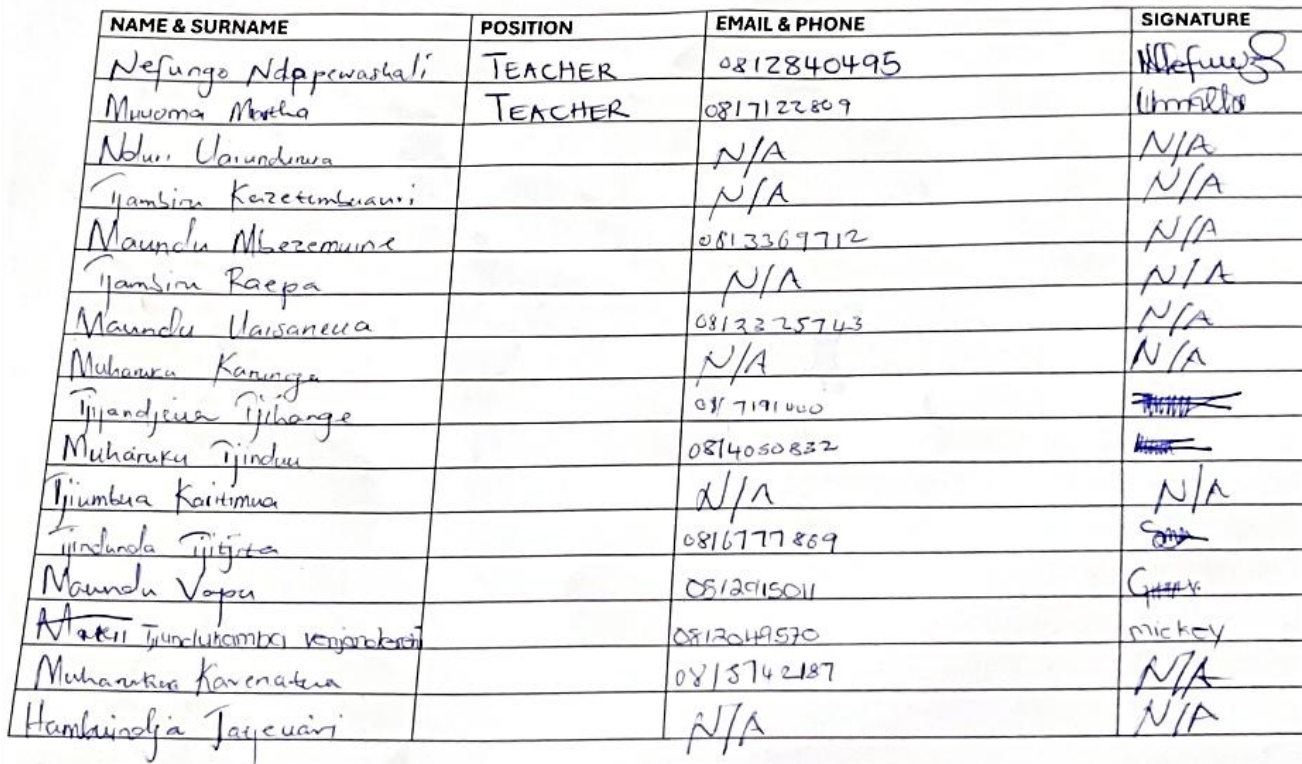 NAME & SURNAME POSITION EMAIL & PHONE SIGNATURE
Nefungo TEACHER 0812840495
Muuoma Martha TEACHER 0817122809
Nduri N/A N/A
Tjambiru N/A N/A
Maundu Mbezemuine 0813369712 N/A
Tjambiru Raepa N/A N/A
Maundu Uaisaneua 0813325743 N/A
Muharuku Karunga N/A N/A
Tjihange
Muharuku Tjinduu 0814050832
Tjiumbua Karitimua N/A N/A
Tjindunda Tjitjita 0816777869
Maundu Vapu 0812915011
Tjundukamba 0812049570 mickey
Muharukua Karenatua 0815742187 N/A
Hambindja N/A N/A